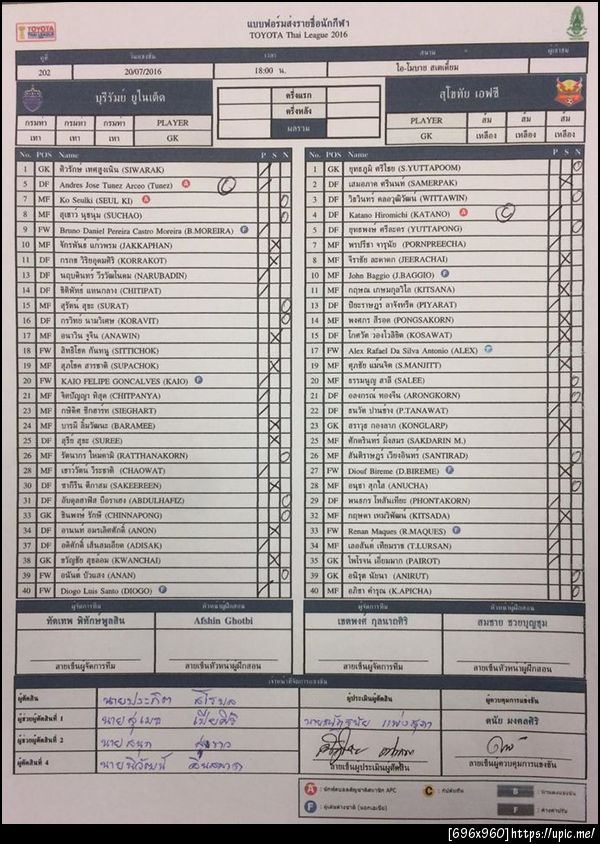 TOYOTA
แบบฟอร์มส่งรายชื่อนักกีฬา
TOYOTA Thai League 2016
คู่ที่ วันแข่งขัน เวลา สนาม ผู้เข้าชม
202 20/07/2016 18:00 น. ไอ-โมบาย สเตเดี้ยม
บุรีรัมย์ ยูไนเต็ด ครึ่งแรก สุโขทัย เอฟซี
กรมท่า กรมท่า กรมท่า PLAYER ครึ่งหลัง PLAYER ส้ม ส้ม ส้ม
เทา เทา เทา GK ผลรวม GK เหลือง เหลือง เหลือง
No. POS Name P S N
1 GK ศิวรักษ์ เทศสูงเนิน (SIWARAK)
5 DF Andres Jose Tunez Arceo (Tunez) A
7 MF Ko Seulki (SEUL KI) A
8 MF สุเชาว์ นุชนุ่ม (SUCHAO)
9 FW Bruno Daniel Pereira Castro Moreira (B.MOREIRA) F
10 MF จักรพันธ์ แก้วพรม (JAKKAPHAN)
11 DF กรกช วิริยอุดมศิริ (KORRAKOT)
13 DF นฤบดินทร์ วีรวัฒโนดม (NARUBADIN)
14 DF ชิติพัทธ์ แทนกลาง (CHITIPAT)
15 MF สุรัตน์ สุขะ (SURAT)
16 DF กรวิทย์ นามวิเศษ (KORAVIT)
17 MF อนาวิน จูจีน (ANAWIN)
18 FW สิทธิโชค กันหนู (SITTICHOK)
19 MF สุภโชค สารชาติ (SUPACHOK)
20 FW KAIO FELIPE GONCALVES (KAIO) F
21 MF จิตปัญญา ทิสุด (CHITPANYA)
23 MF กษิดิศ ซีกฮาร์ท (SIEGHART)
24 MF บารมี ลิ้มวัฒนะ (BARAMEE)
25 DF สุรีย์ สุขะ (SUREE)
26 MF รัตนากร ใหม่คามิ (RATTHANAKORN)
28 MF เชาว์วัฒน์ วีระชาติ (CHAOWAT)
30 DF ซากีรีน ตีกาสม (SAKEEREEN)
31 DF อับดุลฮาฟิส บือราเฮง (ABDULHAFIZ)
33 GK ชินพงษ์ รักษี (CHINNAPONG)
34 DF อานนท์ อมรเลิศศักดิ์ (ANON)
37 DF อดิศักดิ์ เส็นสมเอียด (ADISAK)
38 GK ขวัญชัย สุขล้อม (KWANCHAI)
39 FW อนันต์ บัวแสง (ANAN)
40 FW Diogo Luis Santo (DIOGO) F
No. POS Name P S N
1 GK ยุทธภูมิ ศรีไชย (S.YUTTAPOOM)
2 DF เสมอภาค ศรีนนท์ (SAMERPAK)
3 DF วิธวินทร์ คลอวุฒิวัฒน์ (WITTAWIN)
4 DF Katano Hiromichi (KATANO) A
5 DF ยุทธพงษ์ ศรีละคร (YUTTAPONG)
7 MF พรปรีชา จารุนัย (PORNPREECHA)
8 MF จีราชัย ละดาดก (JEERACHAI)
10 MF John Baggio (J.BAGGIO) F
11 MF กฤษณ เกษมกุลวิไล (KITSANA)
13 DF ปิยะราษฎร์ ลาจังหรีด (PIYARAT)
14 MF พงศกร สีรอด (PONGSAKORN)
15 DF โกศวัด ว่องไวลิขิต (KOSAWAT)
17 FW Alex Rafael Da Silva Antonio (ALEX) F
19 MF ศุภชัย แม่นจิต (S.MANJITT)
20 MF ธรรมนูญ สาลี (SALEE)
21 DF อลงกรณ์ ทองจีน (ARONGKORN)
22 DF ธนวัต ปานช้าง (P.TANAWAT)
23 GK สราวุธ กองลาภ (KONGLARP)
25 MF ศักดรินทร์ มิ่งสมร (SAKDARIN M.)
26 MF สันติราษฎร์ เวียงอินทร์ (SANTIRAD)
27 FW Diouf Bireme (D.BIREME) F
28 MF อนุชา สุกใส (ANUCHA)
29 DF พนธกร โหสันเทียะ (PHONTAKORN)
32 MF กฤษดา เหมวิพัฒน์ (KITSADA)
33 FW Renan Maques (R.MAQUES) F
34 MF เลอสันต์ เทียมราช (T.LURSAN)
35 GK ไพโรจน์ เอี่ยมมาก (PAIROT)
39 GK อนิรุต นัยนา (ANIRUT)
40 MF อภิชา คำรุณ (K.APICHA)
ผู้จัดการทีม หัวหน้าผู้ฝึกสอน ผู้จัดการทีม หัวหน้าผู้ฝึกสอน
ทัดเทพ พิทักษ์พูลสิน Afshin Ghotbi เชตพงศ์ กุลนาถศิริ สมชาย ชวยบุญชุม
ลายเซ็นผู้จัดการทีม ลายเซ็นหัวหน้าผู้ฝึกสอน ลายเซ็นผู้จัดการทีม ลายเซ็นหัวหน้าผู้ฝึกสอน
เจ้าหน้าที่จัดการแข่งขัน
ผู้ตัดสิน ผู้ประเมินผู้ตัดสิน ผู้ควบคุมการแข่งขัน
ผู้ช่วยผู้ตัดสินที่ 1 ดนัย มงคลศิริ
ผู้ช่วยผู้ตัดสินที่ 2
ผู้ตัดสินที่ 4 ลายเซ็นผู้ประเมินผู้ตัดสิน ลายเซ็นผู้ควบคุมการแข่งขัน
A นักฟุตบอลสัญชาติสมาชิก APC C กัปตันทีม B
F ผู้เล่นต่างชาติ (นอกเอเชีย) F ค้างค่าปรับ
[696x960]https://upic.me/